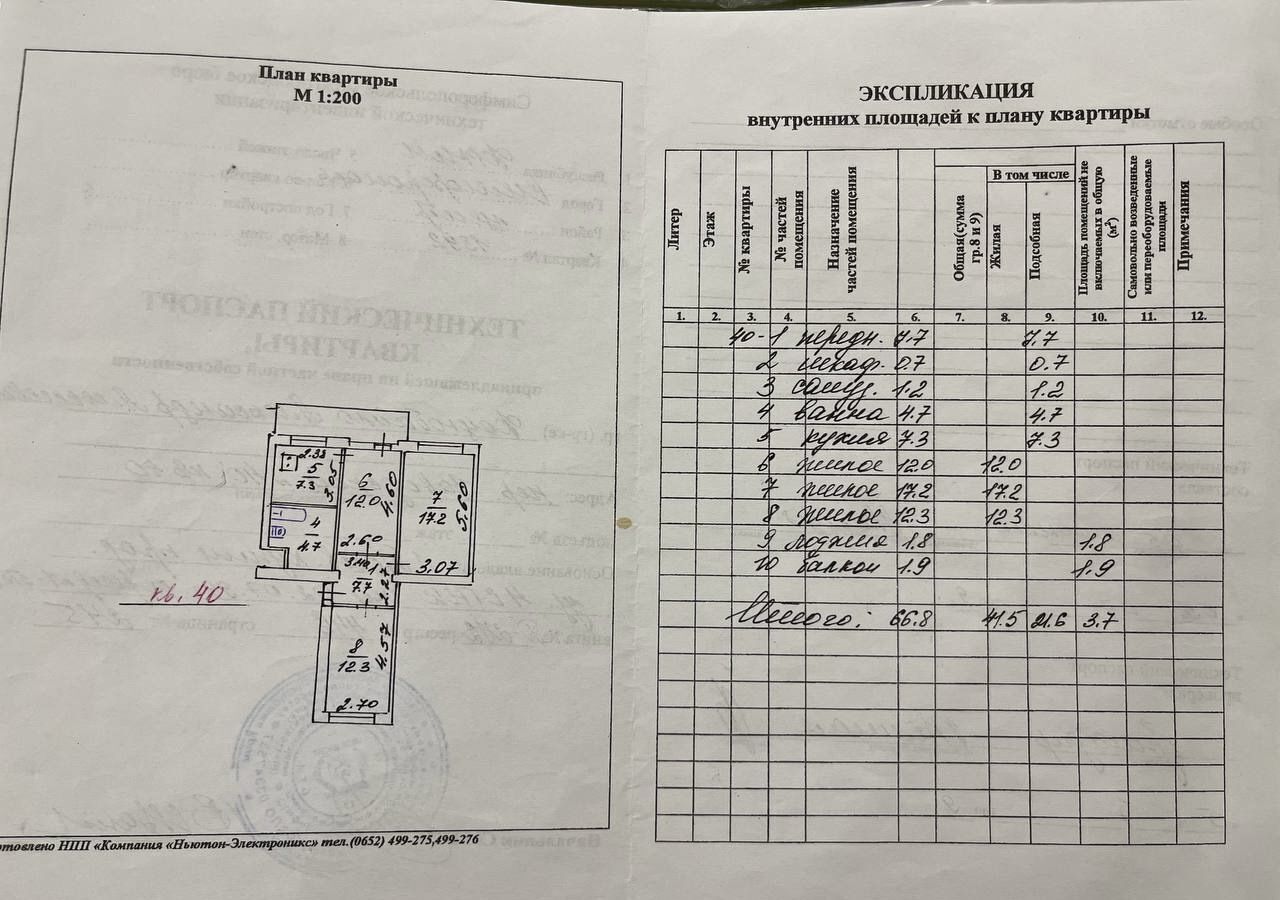 План квартиры
М 1:200
2.38
5
7.3
3.05
6
12.0
4.60
7
17.2
5.60
4
4.7
2.60
3.40
1
7.7
2.27
3.07
кв. 40
8
12.3
4.57
2.70
отовлено НПП «Компания «Ньютон-Электроникс» тел.(0652) 499-275,499-276
ЭКСПЛИКАЦИЯ
внутренних площадей к плану квартиры
Литер
Этаж
№ квартиры
№ частей помещения
Назначение частей помещения
Общая(сумма гр.8 и 9)
В том числе
Жилая
Подсобная
Площадь помещений не включаемых в общую (м²)
Самовольно возведенные или переоборудоваемые площади
Примечания
1. 2. 3. 4. 5. 6. 7. 8. 9. 10. 11. 12.
40-1 передн. 7.7 7.7
2 шкаф. 0.7 0.7
3 сануз. 1.2 1.2
4 ванна 4.7 4.7
5 кухня 7.3 7.3
6 жилое 12.0 12.0
7 жилое 17.2 17.2
8 жилое 12.3 12.3
9 лоджия 1.8 1.8
10 балкон 1.9 1.9
Итого: 66.8 41.5 21.6 3.7